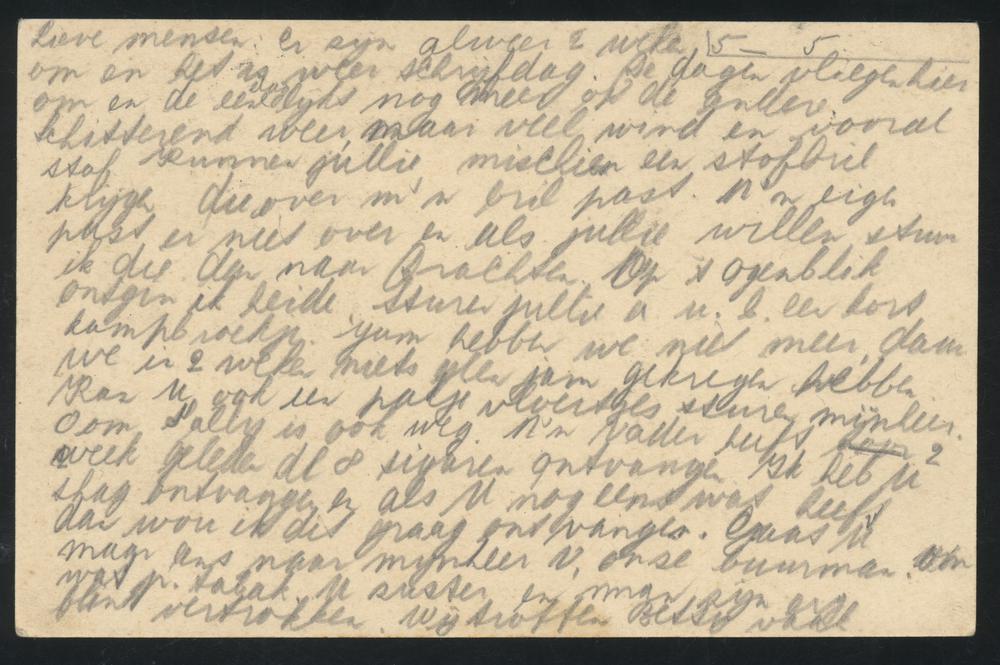 Lieve mensen: Er zyn alweer 2 weken 5 – 5
om en het is weer schrijfdag. De dagen vliegen hier
om en de nog meer op de
Schitterend weer maar veel wind en vooral
stof. Kunnen jullie mischien een stofbril
krijgen die over m'n bril past. M'n eigen
past er niet over en als jullie willen stuur
ik die dan naar Drachten. Op 's ogenblik
ik beide sturen jullie a. u. b. een bors
jam hebben we niet meer, daar
we in 2 weken niets geen jam gekregen hebben
Kan U ook een pakje sturen mijnheer.
Oom Sally is ook weg. M'n vader heeft 2
week geleden de 8 sigaren ontvangen Ik heb U
shag ontvangen en als U nog eens wat heeft
dan wou ik dit graag ontvangen. U
maar ans naar mynheer V, onse buurman. om
wat p. tabak. U suster en man zijn erg
vertrokken. Wij troffen Betsy vake